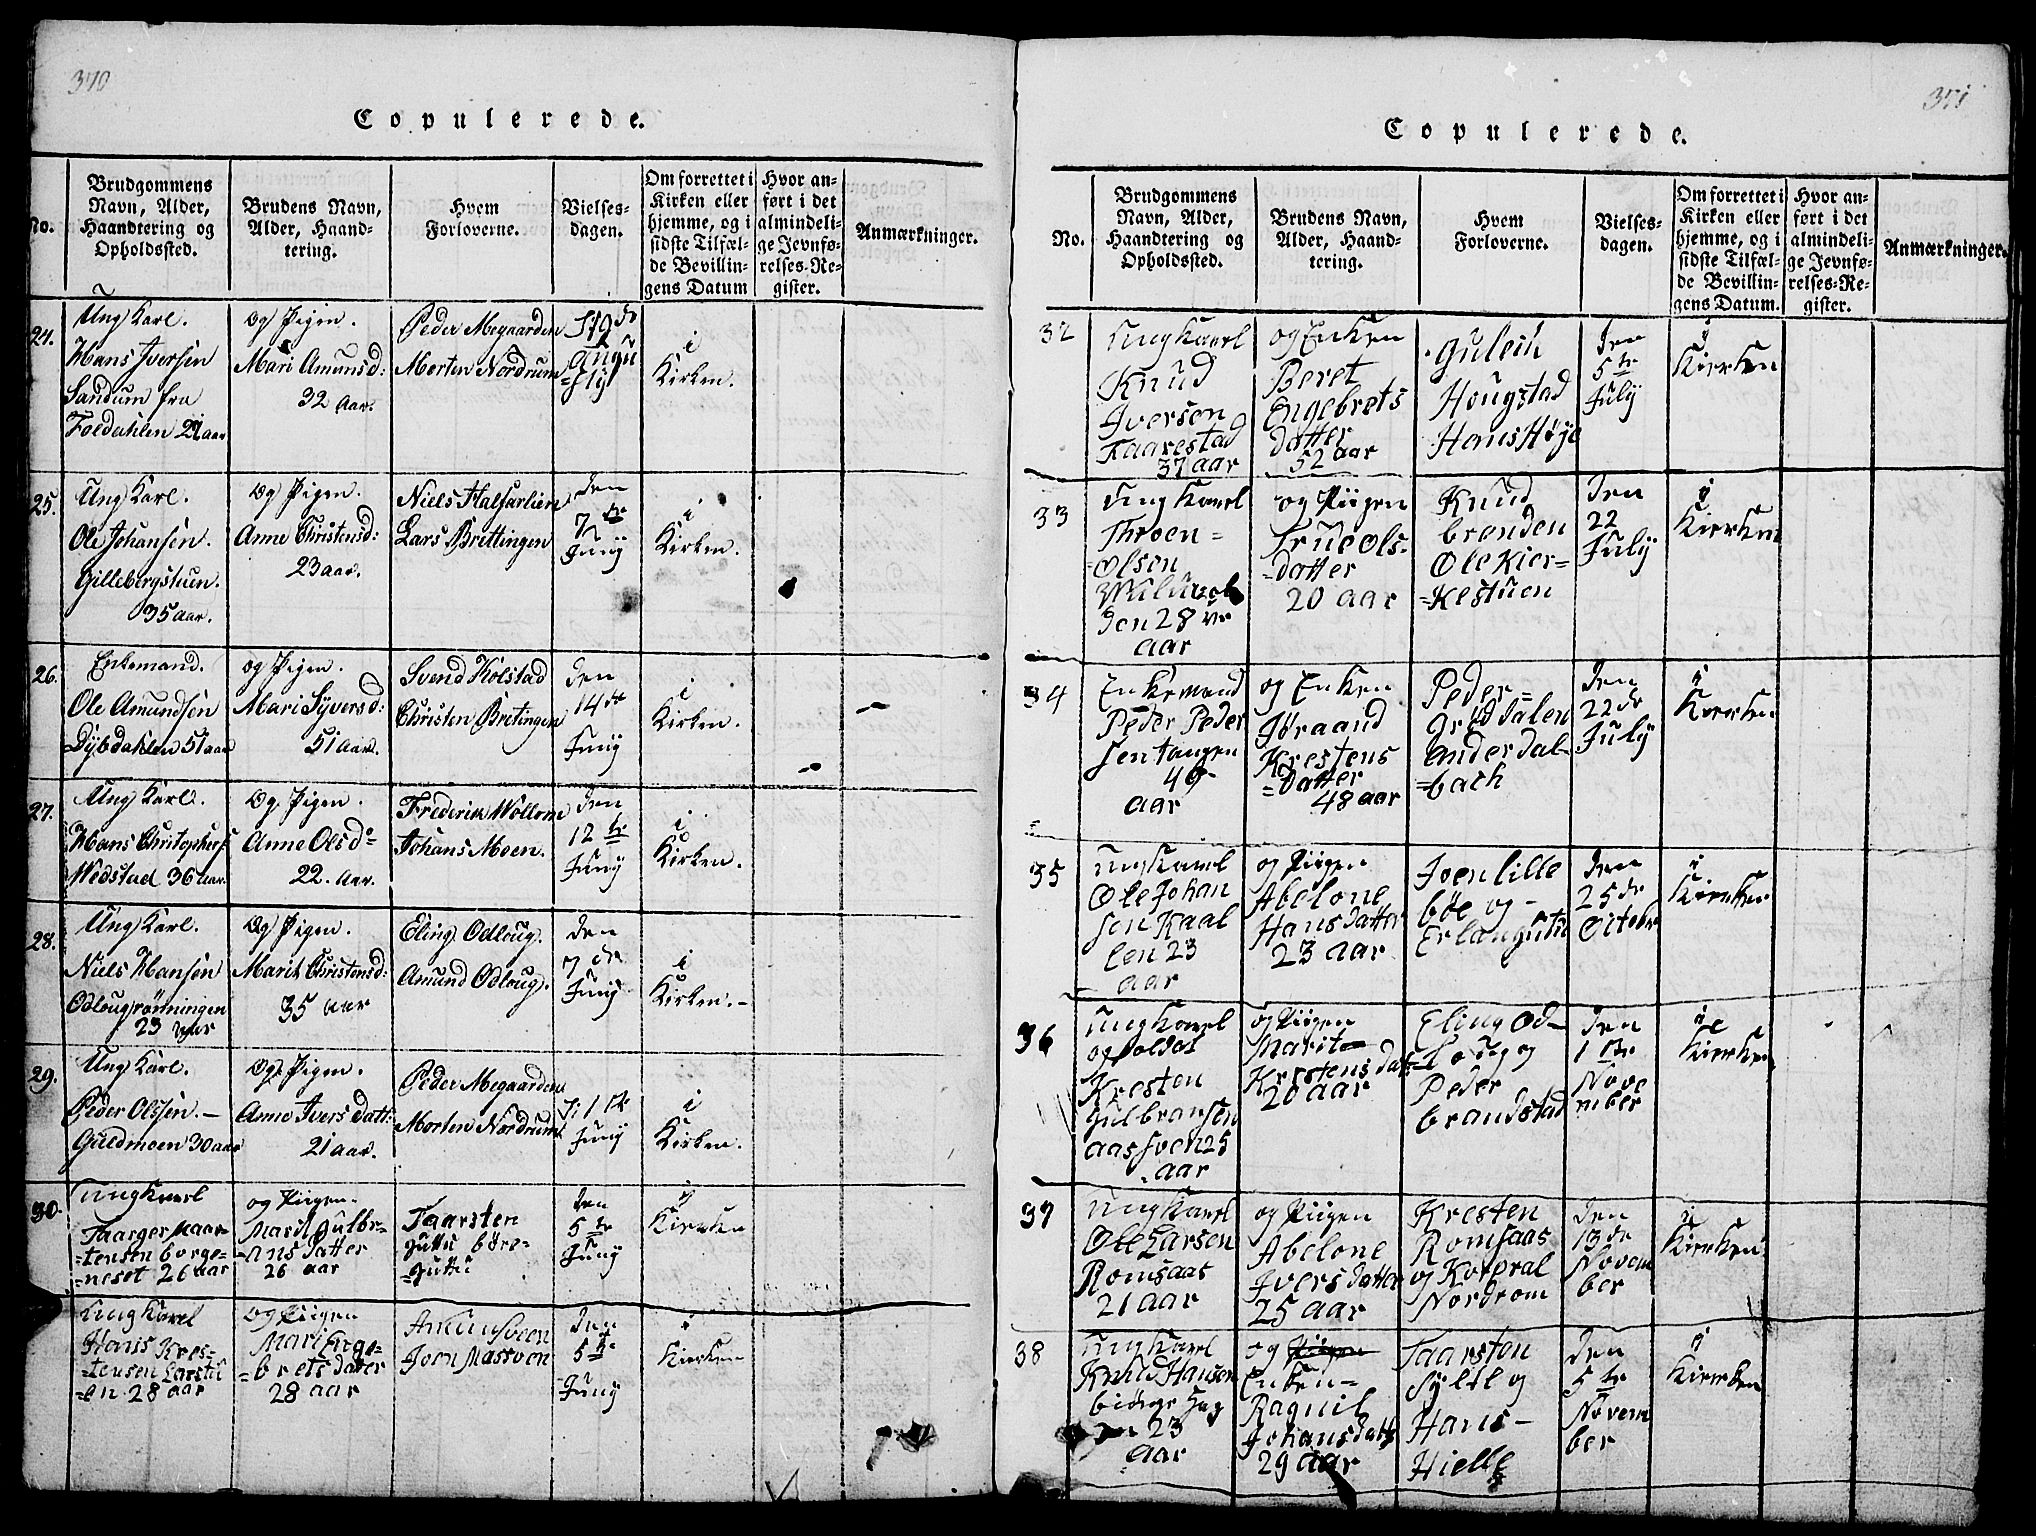 370
Copulerede.
No.
Brudgommens
Navn, Alder,
Haandtering og
Opholdssted.
Brudens Navn,
Alder, Haand-
tering.
Hvem
Forloverne.
Vielses-
dagen.
Om forrettet i
Kirken eller
hjemme, og i
sidste Tilfæl-
de Bevillin-
gens Datum
Hvor an-
ført i det
almindeli-
ge Jevnfø-
relses-Re-
gister.
Anmærkninger.
24.
Ung Karl.
Hans Iversen
Sandum fra
Foldahlen 21 aar
Og Pigen.
Mari Amunsd:
32 Aar.
Peder Megaarden
Morten Nordrum
i
Kirken.
25.
Ung Karl.
Ole Johansen.
Gillebergstuen.
35 aar.
Og Pigen.
Anne Christensd:
23 aar.
Niels Halfarlien
Lars Brettingen
den
7 de
Junij
i
Kirken.
26.
Enkemand.
Ole Amundsen
Dybdahlen 51 aar
og Pigen.
Mari Syversd:
51 aar.
Svend Kolstad
Christen Bretingen
den
14 de
Junij
i
Kirken.
27.
Ung Karl.
Hans Christophers
Wedstad 36 aar.
Og Pigen.
Anne Olsd=
22. Aar.
Frederik Wollom
Johans Moen.
den
12 te
Junij
i
Kirken.
28.
Ung Karl.
Niels Hansen
Odlougrønningen
23 aar
Og Pigen.
Marit Christensd:
35 aar
Eling Odloug.
Amund Odloug.
den
7 de
Junij
i
Kirken.-
29.
Ung Karl.
Peder Olsen.-
Guldmoen 30 aar
Og Pigen.
Anne Ivers datt:
21 aar.
Peder Megaarden
Morten Nordrum
Junij
i
Kirken.
30.
ung Karl
Taarger Maar
=tensen borge-
=neset 26 aar
og Piigen.
Mari Gulbr-
=ans datter
26 aar
Taarsten
Gutti böre-
=Gutti
den
5 te
Junij
i
Kierken
ung Karl
Hans Kres-
=tensen Larstu
=en 28 aar
og Piigen
Mari Enge-
=brets datter
28 aar
Amun Sveen
Joen Massoen
den
5 te
Junij
i
Kierken
371
Copulerede.
No.
Brudgommens
Navn, Alder,
Haandtering og
Opholdssted.
Brudens Navn,
Alder, Haand-
tering.
Hvem
Forloverne.
Vielses-
dagen.
Om forrettet i
Kirken eller
hjemme, og i
sidste Tilfæl-
de Bevillin-
gens Datum.
Hvor an-
ført i det
almindeli-
ge Jevnfø-
relses-Re-
gister.
Anmærkninger.
32
ung Karl
Knud
Iversen
Taarestad
37 aar
og Enken
Beret
Engebrets
datter
52 aar
Gulech
Hougstad
Hans Høye
den
5 te
July
i
Kierken
33
ung Karl
Throen=
=olsen
den 28
aar
og Piigen
True Ols-
=datter
20 aar
Knud
branden
Ole Kier=
=Kestuen
den
22
July
i
Kierken
34
Enkemand
Peder Peder
sen tangen
46-
aar
og Enken
Jøraand
Krestens
=Datter
48 aar
Peder=
Grøddalen
ander dal=
=bach
den
22 de
July
i
Kierken
35
ung Karl
Ole Johan
sen Kaal
len 23
aar
og Piigen
Abelone
Hans datter
23 aar
Joen lille
böe og-
den
25 de
October
i
Kierken
36
ung Karl
og Soldat
Kresten
Gulbransen
aassveen 25
aar
og Piigen
Marit
Krestens dat=
20 aar
Eling Od-
=loug og
Peder
brandstad
den
1 ste
Nove
mber
i
Kierken
37
ung Karl
Ole Larsen
Romsaas
21 aar
og Piigen
Abelone
Ivers datter
25 aar
Kresten
Romsaas
og Korpral
Nordrom
den
13 de
Novem
ber
i
Kierken
38
ung Karl
Knud Hansen
biörge Hag
en 23
aar
og Piigen
Enken=
Ragnil
Johans datt
29 aar
Taarsten
Sylte og
Hans-
Hielle
den
5 te
Novem
ber
i
Kierken